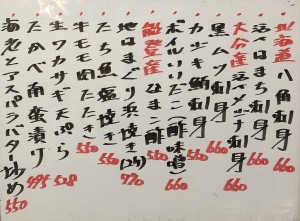 北海道産 八角刺身 660
活〆 刺身 660
大分産 活〆シマアジ刺身 660
黒ムツ刺身 660
カツオ 刺身 550
ボイルいいだこ(酢味噌) 660
能登産 なまこ酢 550
地はまぐり浜焼き(2ケ) 770
たち魚塩焼き 550
牛モモ肉たたき 550
生ワカサギ天ぷら 528
たかべ南蛮漬け 495
海老とアスパラバター炒め 550